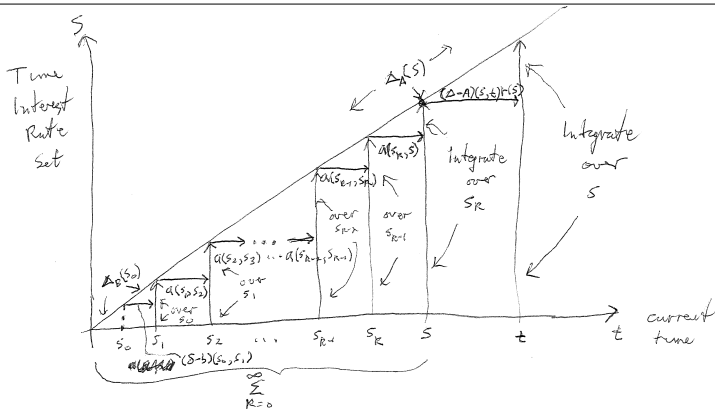 S
Time
Interest
Rate
Set
Δ_A(s)
(Δ-A)(s,t)r(s)
Integrate
over
s
a(s_k,s)
integrate
over
s_k
a(s_{k-1},s_k)
over
s_{k-2}
over
s_{k-1}
a(s_2,s_3) ... a(s_{k-2},s_{k-1})
Δ_B(s_0)
a(s_1,s_2)
over
s_0
over
s_1
s_0 s_1 s_2 ... s_{k-1} s_k s t
t
current
time
(δ-b)(s_0,s_1)
∞
Σ
k=0